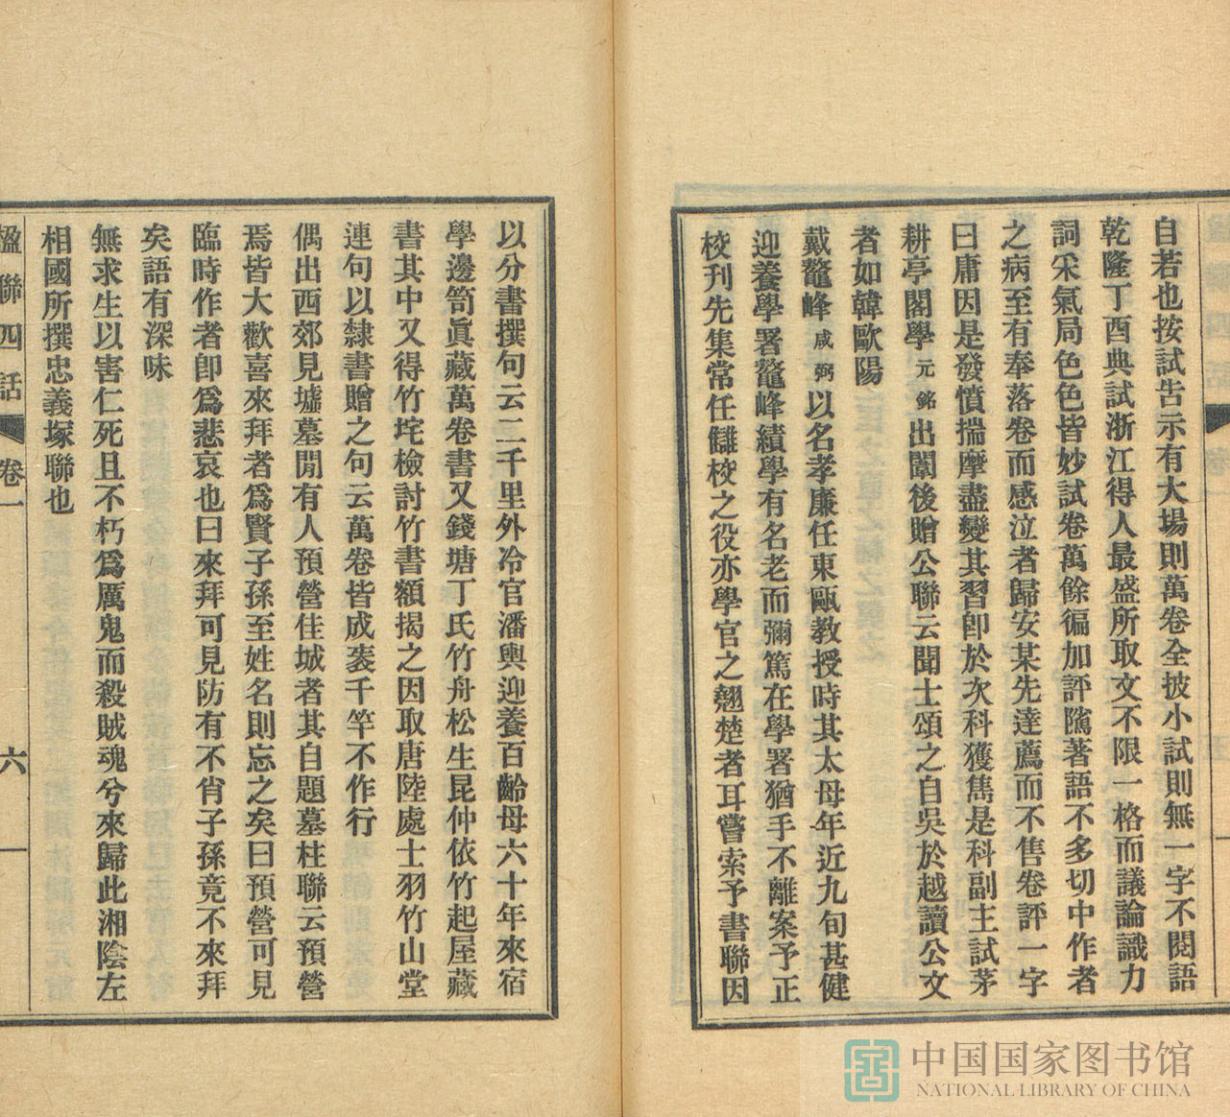 自若也按試告示有大場則萬卷全披小試則無一字不閱語
乾隆丁酉典試浙江得人最盛所取文不限一格而議論識力
詞采氣局色色皆妙試卷萬餘徧加評隲著語不多切中作者
之病至有奉落卷而感泣者歸安某先達薦而不售卷評一字
曰庸因是發憤揣摩盡變其習卽於次科獲雋是科副主試茅
耕亭閣學元銘出闈後贈公聯云聞士頌之自吳於越讀公文
者如韓歐陽
戴鼇峰咸弼以名孝廉任東甌教授時其太母年近九旬甚健
迎養學署鼇峰績學有名老而彌篤在學署猶手不離案予正
校刊先集常任讎校之役亦學官之翹楚者耳嘗索予書聯因
以分書撰句云二千里外冷官潘輿迎養百齡母六十年來宿
學邊笥眞藏萬卷書又錢塘丁氏竹舟松生昆仲依竹起屋藏
書其中又得竹垞檢討竹書額揭之因取唐陸處士羽竹山堂
連句以隸書贈之句云萬卷皆成袠千竿不作行
偶出西郊見墟墓閒有人預營佳城者其自題墓柱聯云預營
焉皆大歡喜來拜者爲賢子孫至姓名則忘之矣曰預營可見
臨時作者卽爲悲哀也曰來拜可見防有不肖子孫竟不來拜
矣語有深味
無求生以害仁死且不朽爲厲鬼而殺賊魂兮來歸此湘陰左
相國所撰忠義塚聯也
楹聯四話 卷一 六
中国国家图书馆
NATIONAL LIBRARY OF CHINA